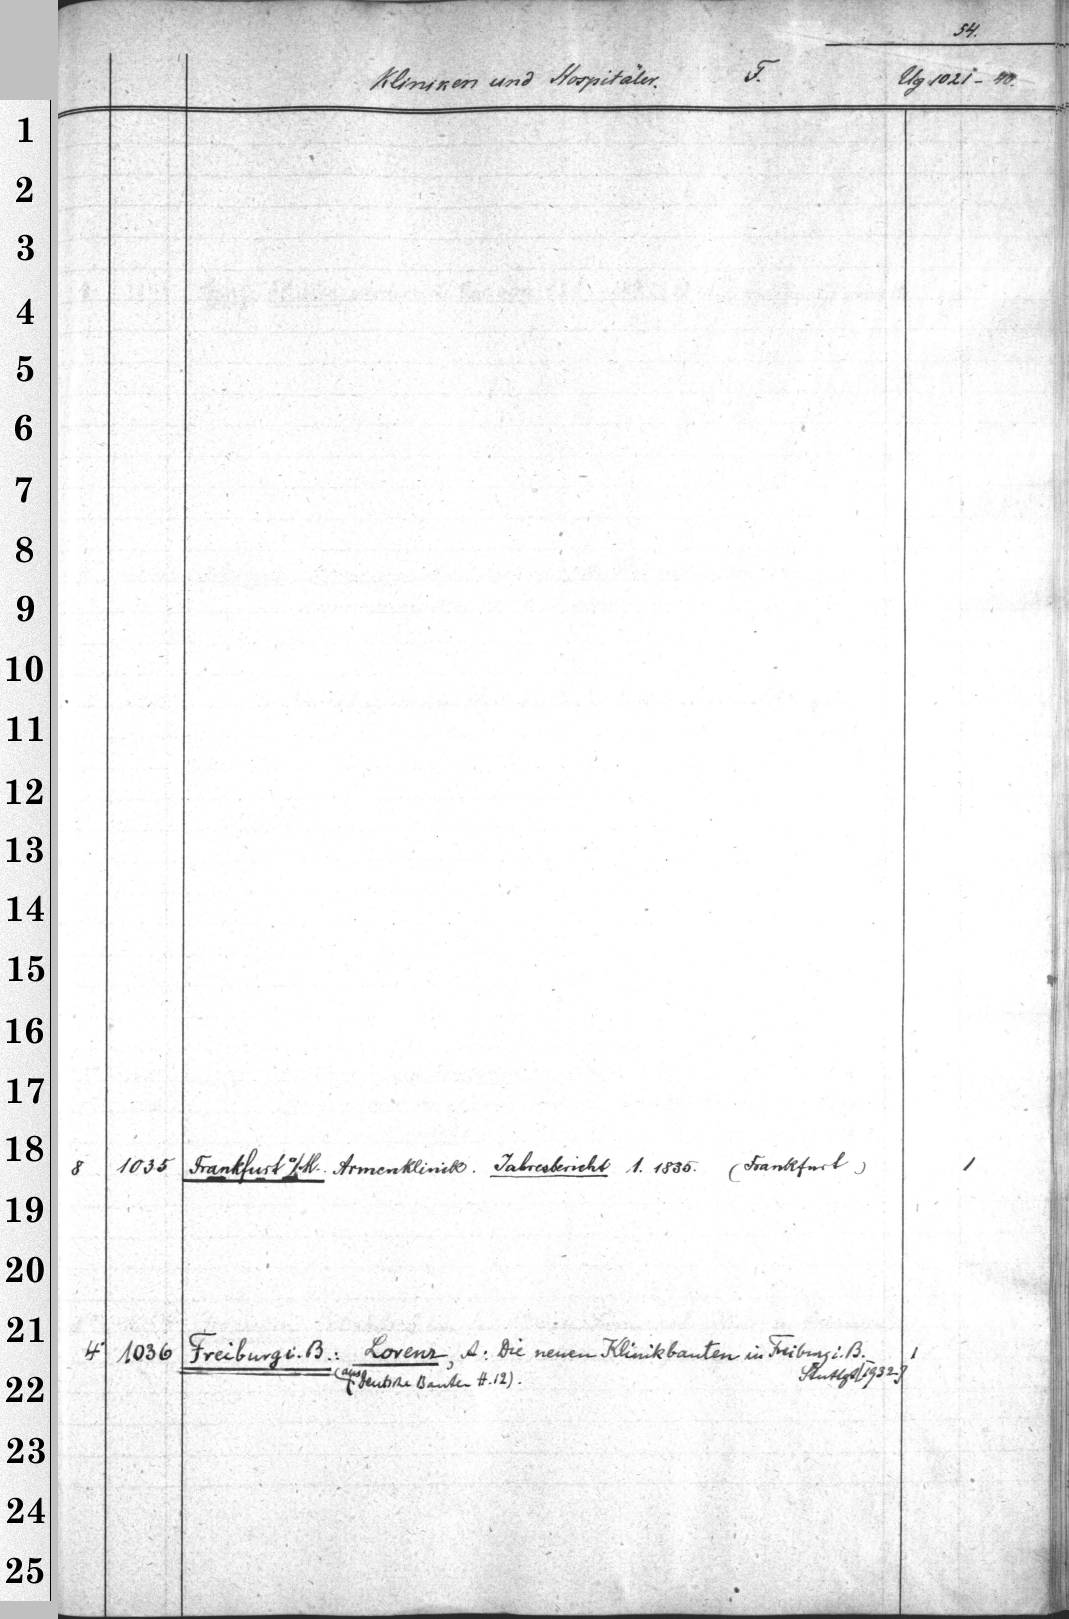 54.
Kliniken und Hospitäler. F. Ug 1021 - 40.
1
2
3
4
5
6
7
8
9
10
11
12
13
14
15
16
17
18
8 1035 Frankfurt a/M. Armenklinik. Jahresbericht 1. 1835. (Frankfurt) 1
19
20
21
4° 1036 Freiburg i. B.: Lorenz, A: Die neuen Klinikbauten in Freiburg i. B. 1
(aus Deutsche Bauten H. 12). Stuttgt [1932]
22
23
24
25